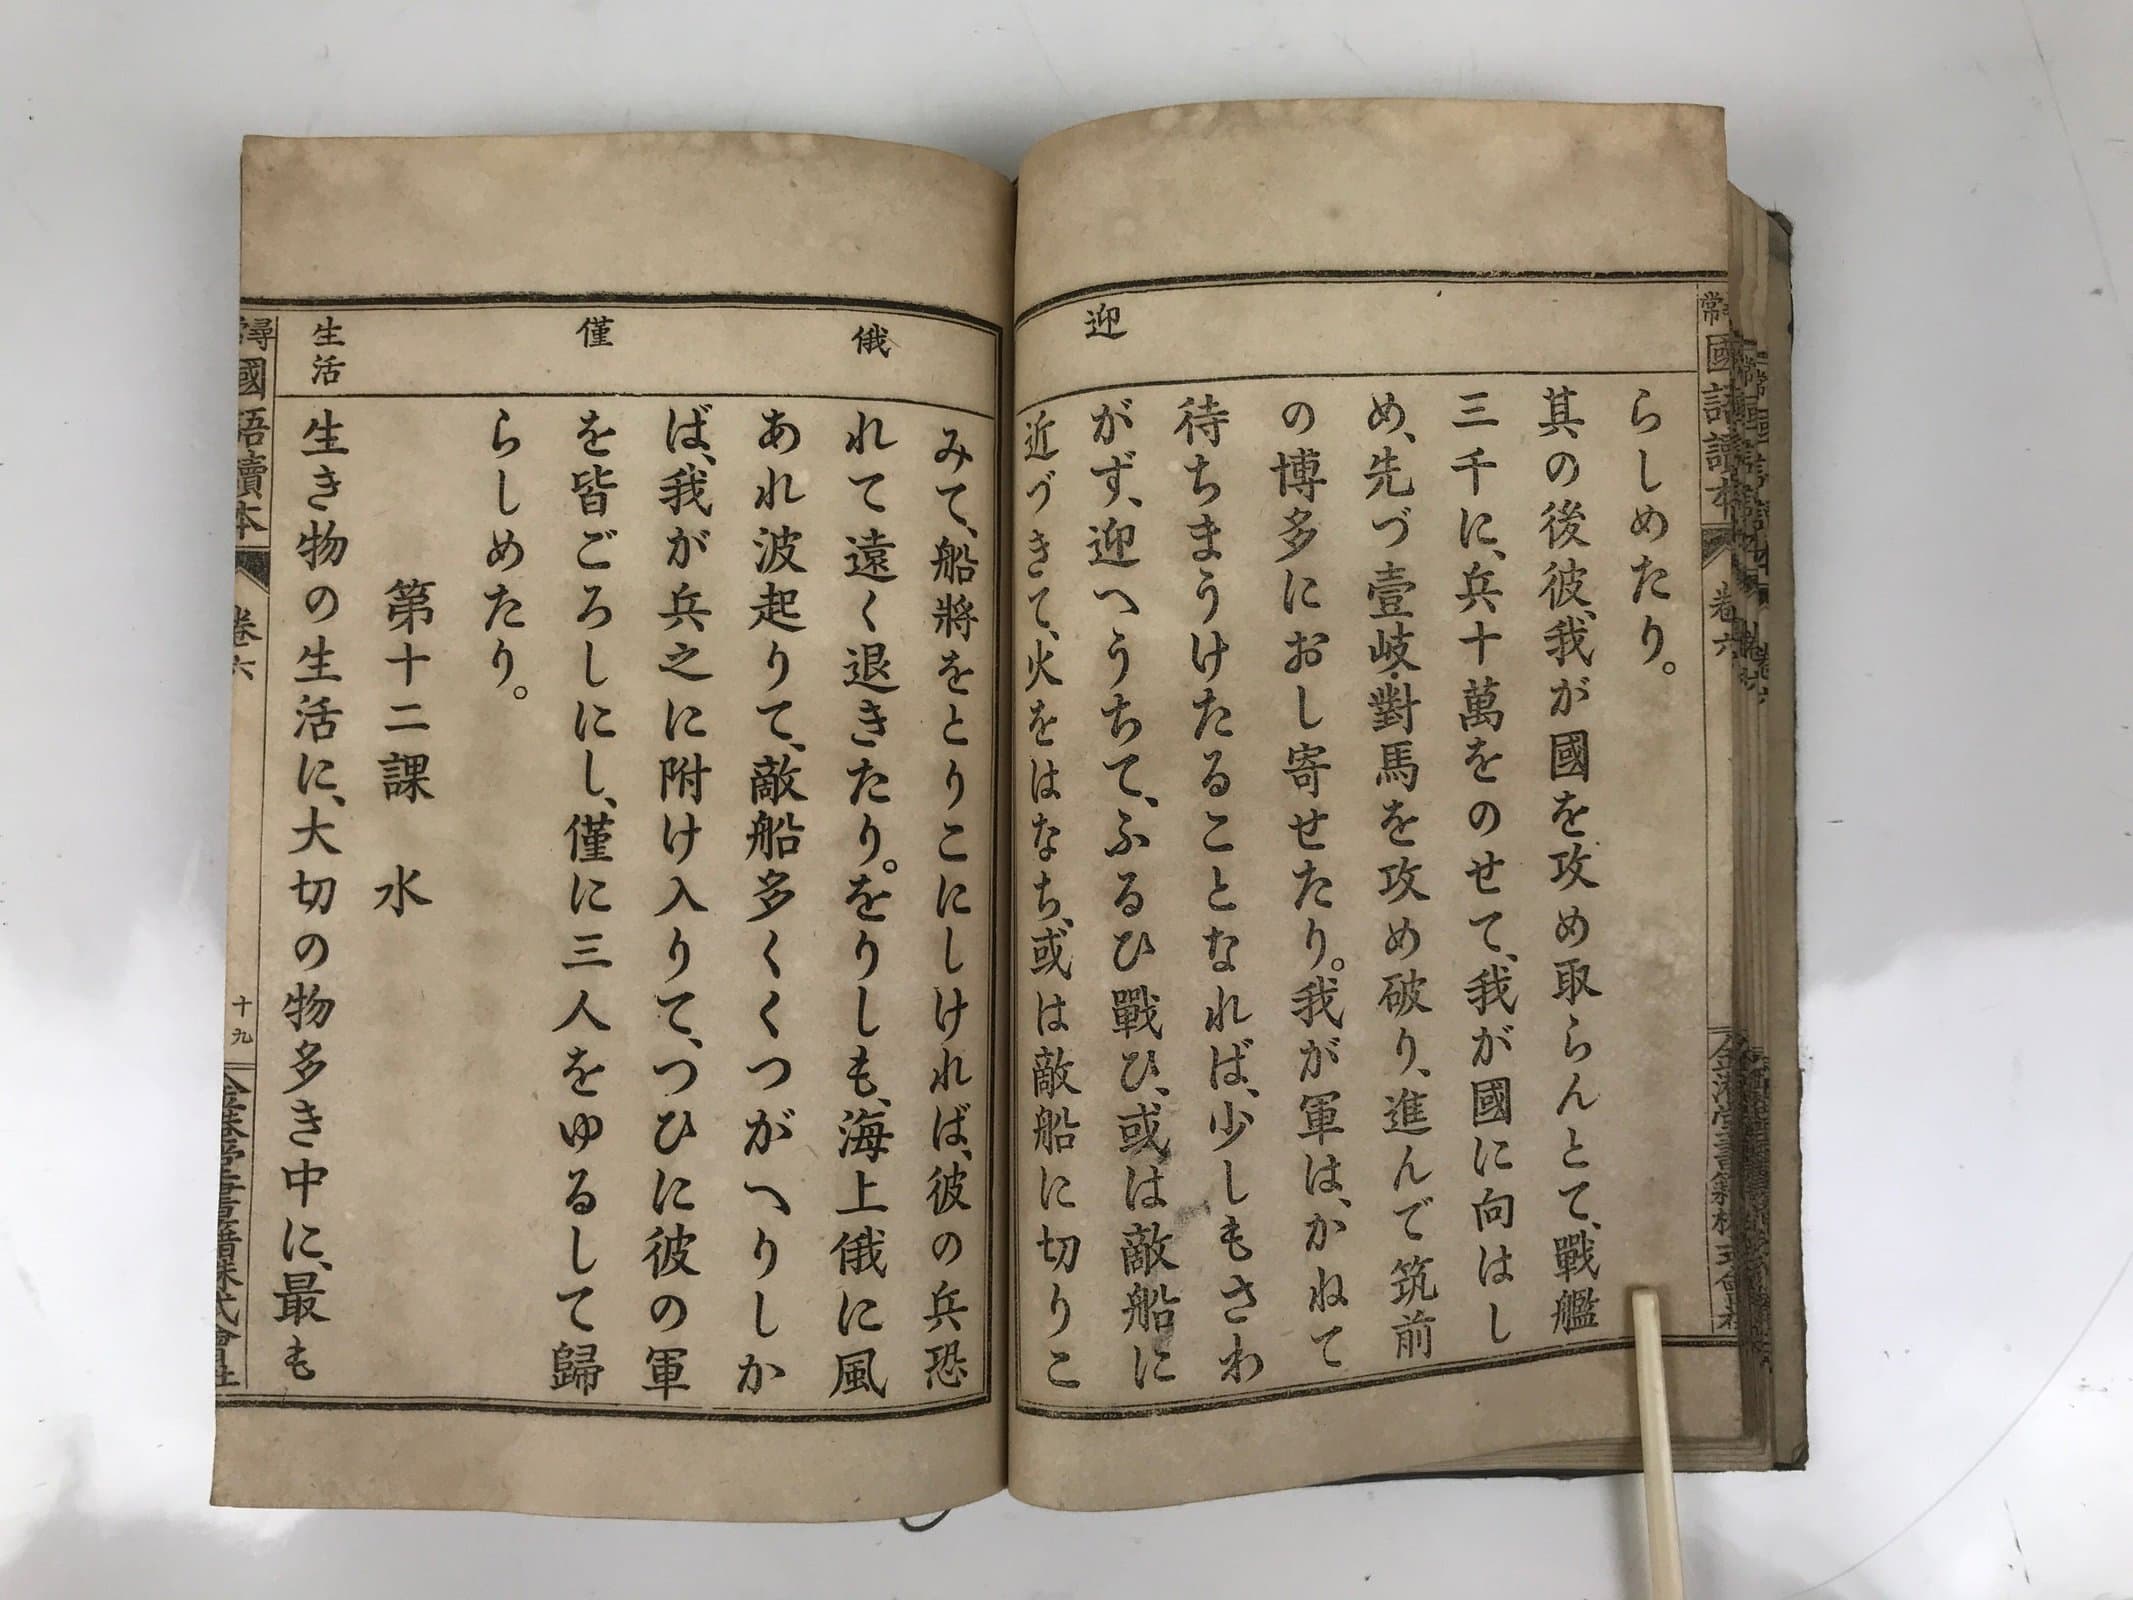 常國語讀本
卷六
迎
らしめたり。
其の後彼、我が國を攻め取らんとて、戰艦
三千に、兵十萬をのせて、我が國に向はし
め、先づ壹岐・對馬を攻め破り、進んで筑前
の博多におし寄せたり。我が軍は、かねて
待ちまうけたることなれば、少しもさわ
がず、迎へうちて、ふるひ戰ひ、或は敵船に
近づきて、火をはなち、或は敵船に切りこ
俄
僅
生活
みて、船將をとりこにしければ、彼の兵恐
れて遠く退きたり。をりしも、海上俄に風
あれ波起りて、敵船多くくつがへりしか
ば、我が兵之に附け入りて、つひに彼の軍
を皆ごろしにし、僅に三人をゆるして歸
らしめたり。
第十二課 水
生き物の生活に、大切の物多き中に、最も
尋常國語讀本
卷六
十九
金港堂書籍株式會社